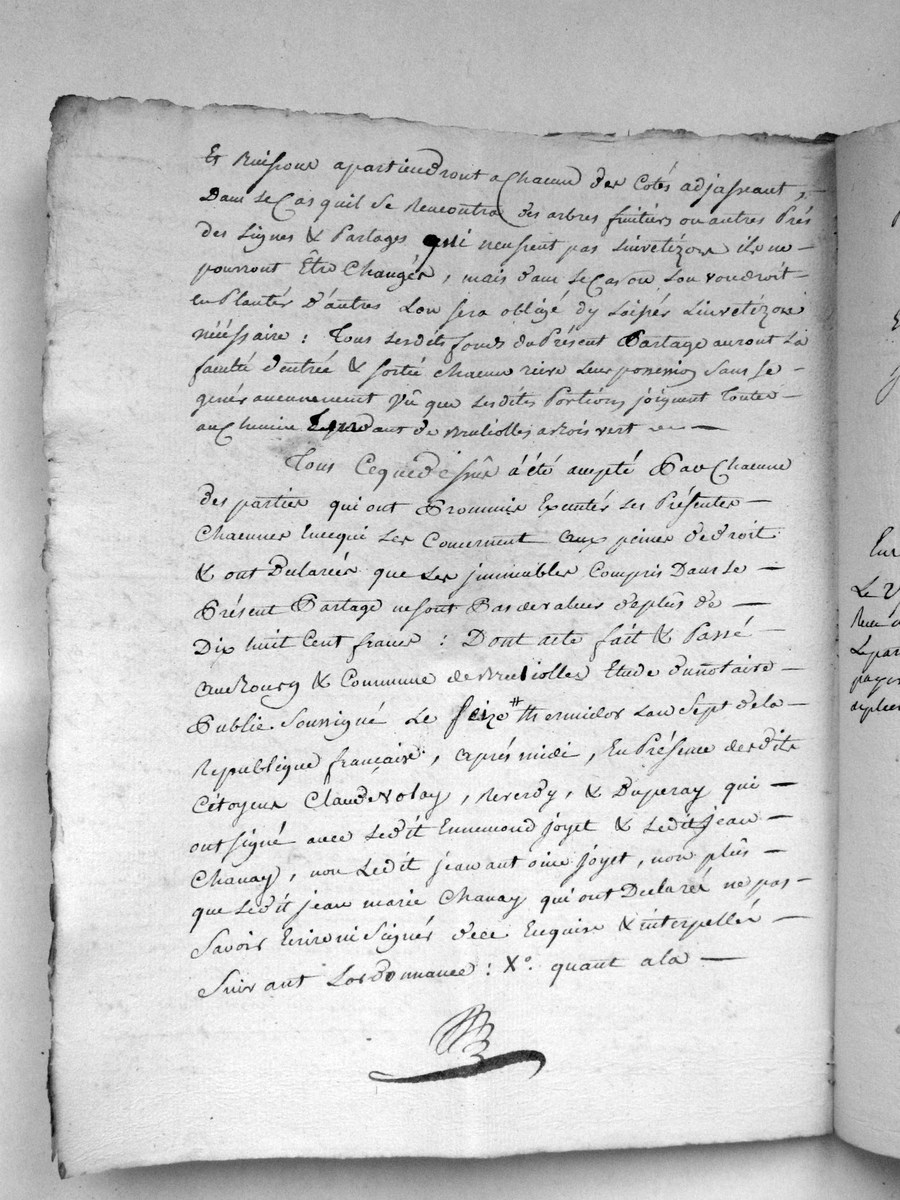 Et Buissons apartiendront a Chacune des Cotés adjassant, —
Dans le Cas quil se Rencontra des arbres fruitiers ou autres Prés
des Lignes & Partages qui neussent pas Linvetizon ils ne —
pourront Etre Changés, mais dans le Cas ou Lon voudroit
en Plantés D'autres Lon sera obligé dy Laissés Linvetizon
nécéssaire : Tous Lesdits fonds du Présent Partage auront La
faculté d'entrée & sortie Chacun rière Leur possession Sans se -
genér aucunement Vû que Lesdites Portions joignent Toutes —
au Chemin de Brulliolles a Bois vert —
Tous Ceque dessus à été accepté Par Chacune
des parties qui ont Prommis Exécutés Les Présentes —
Chacunes Encequi Les Concernent aux peines de droit
& ont Déclarées que Les jmmeubles Compris Dans Le —
Présent Partage ne sont Pas de valeur de plus de —
Dix huit Cent francs : Dont acte fait & Passé —
au Bourg & Commune de Brulliolles Etude du notaire —
Public Soussigné Le seize # thermidor Lan Sept de la —
Republique française, après midi, En Présence desdits
Citoyens Claude Volay, Reverdy, & Duperay qui —
ont signé avec Ledit Ennemond joyet & Ledit jean —
Chanay, non Ledit jean antoine joyet, non plus —
que Ledit jean marie Chanay qui ont Déclaré ne pas -
Savoir Ecrire ni Signés dece Enquise & interpellés —
Suivant Lordonnance : X°. quant a la —
Le